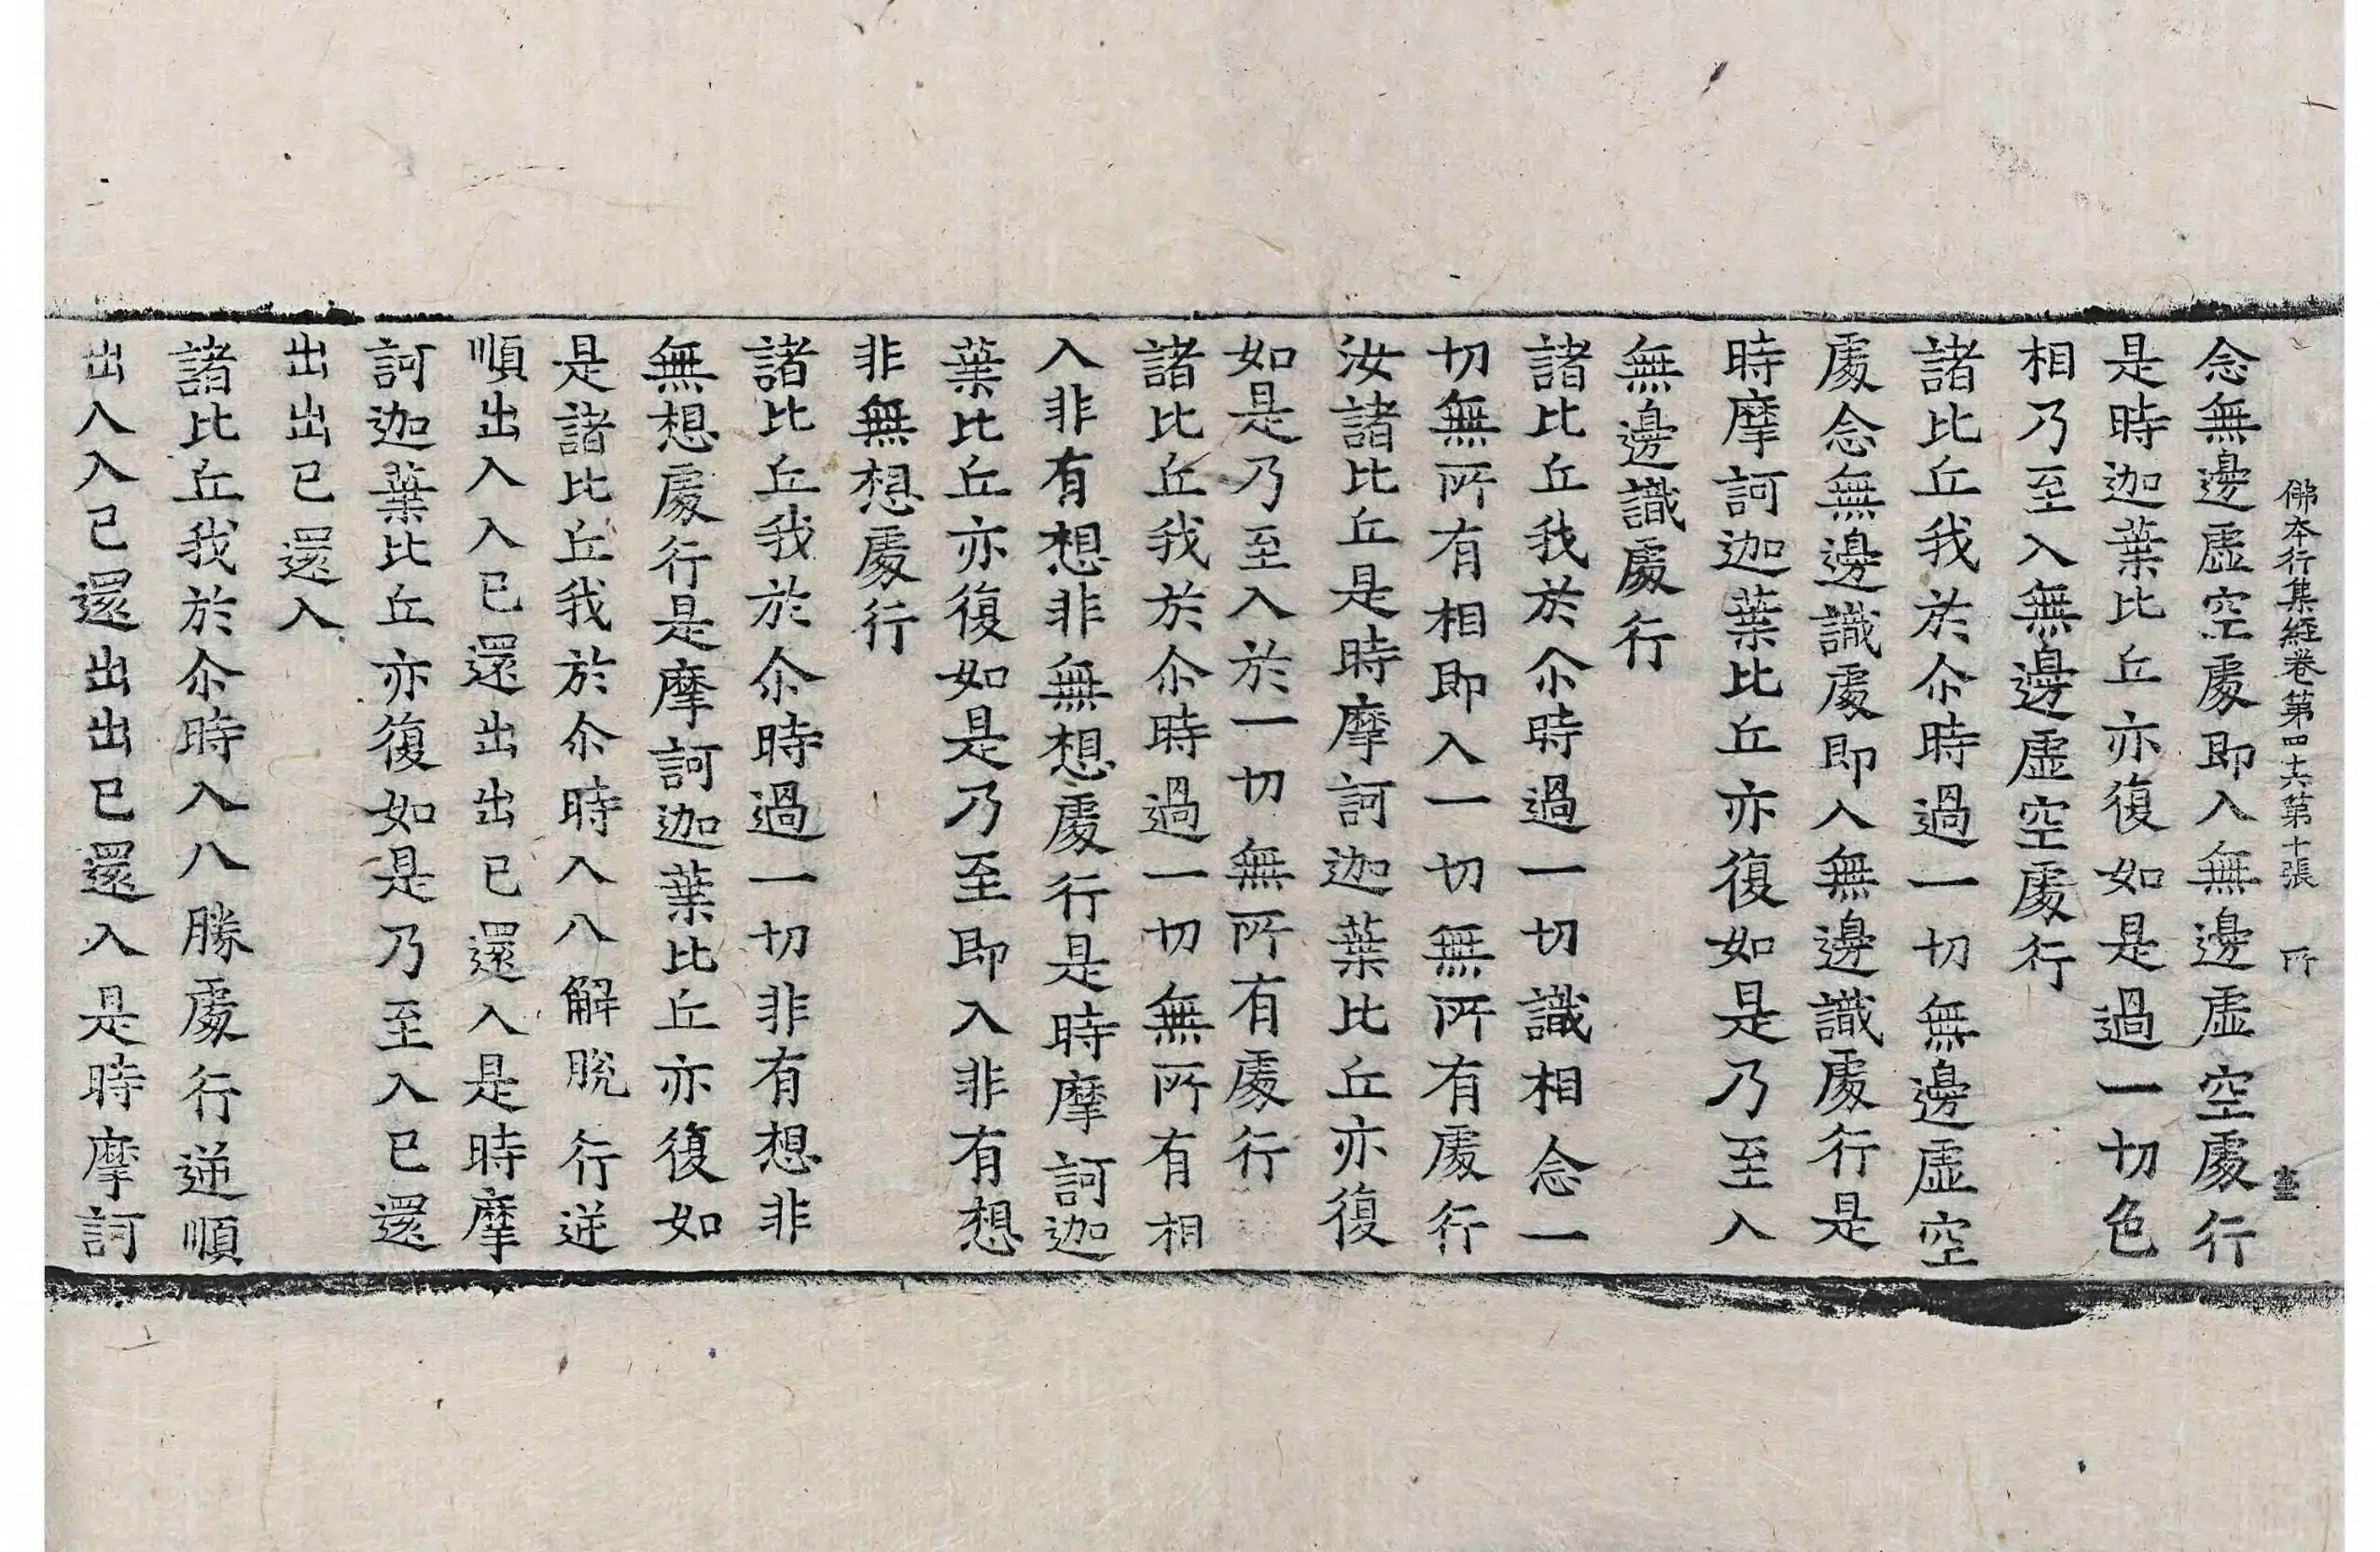 佛本行集經卷第四十六 第十張 所
念無邊虛空處即入無邊虛空處行
是時迦葉比丘亦復如是過一切色
相乃至入無邊虛空處行
諸比丘我於尒時過一切無邊虛空
處念無邊識處即入無邊識處行是
時摩訶迦葉比丘亦復如是乃至入
無邊識處行
諸比丘我於尒時過一切識相念一
切無所有相即入一切無所有處行
汝諸比丘是時摩訶迦葉比丘亦復
如是乃至入於一切無所有處行
諸比丘我於尒時過一切無所有相
入非有想非無想處行是時摩訶迦
葉比丘亦復如是乃至即入非有想
非無想處行
諸比丘我於尒時過一切非有想非
無想處行是摩訶迦葉比丘亦復如
是諸比丘我於尒時入八解脫行逆
順出入入已還出出已還入是時摩
訶迦葉比丘亦復如是乃至入已還
出出已還入
諸比丘我於尒時入八勝處行逆順
出入入已還出出已還入是時摩訶